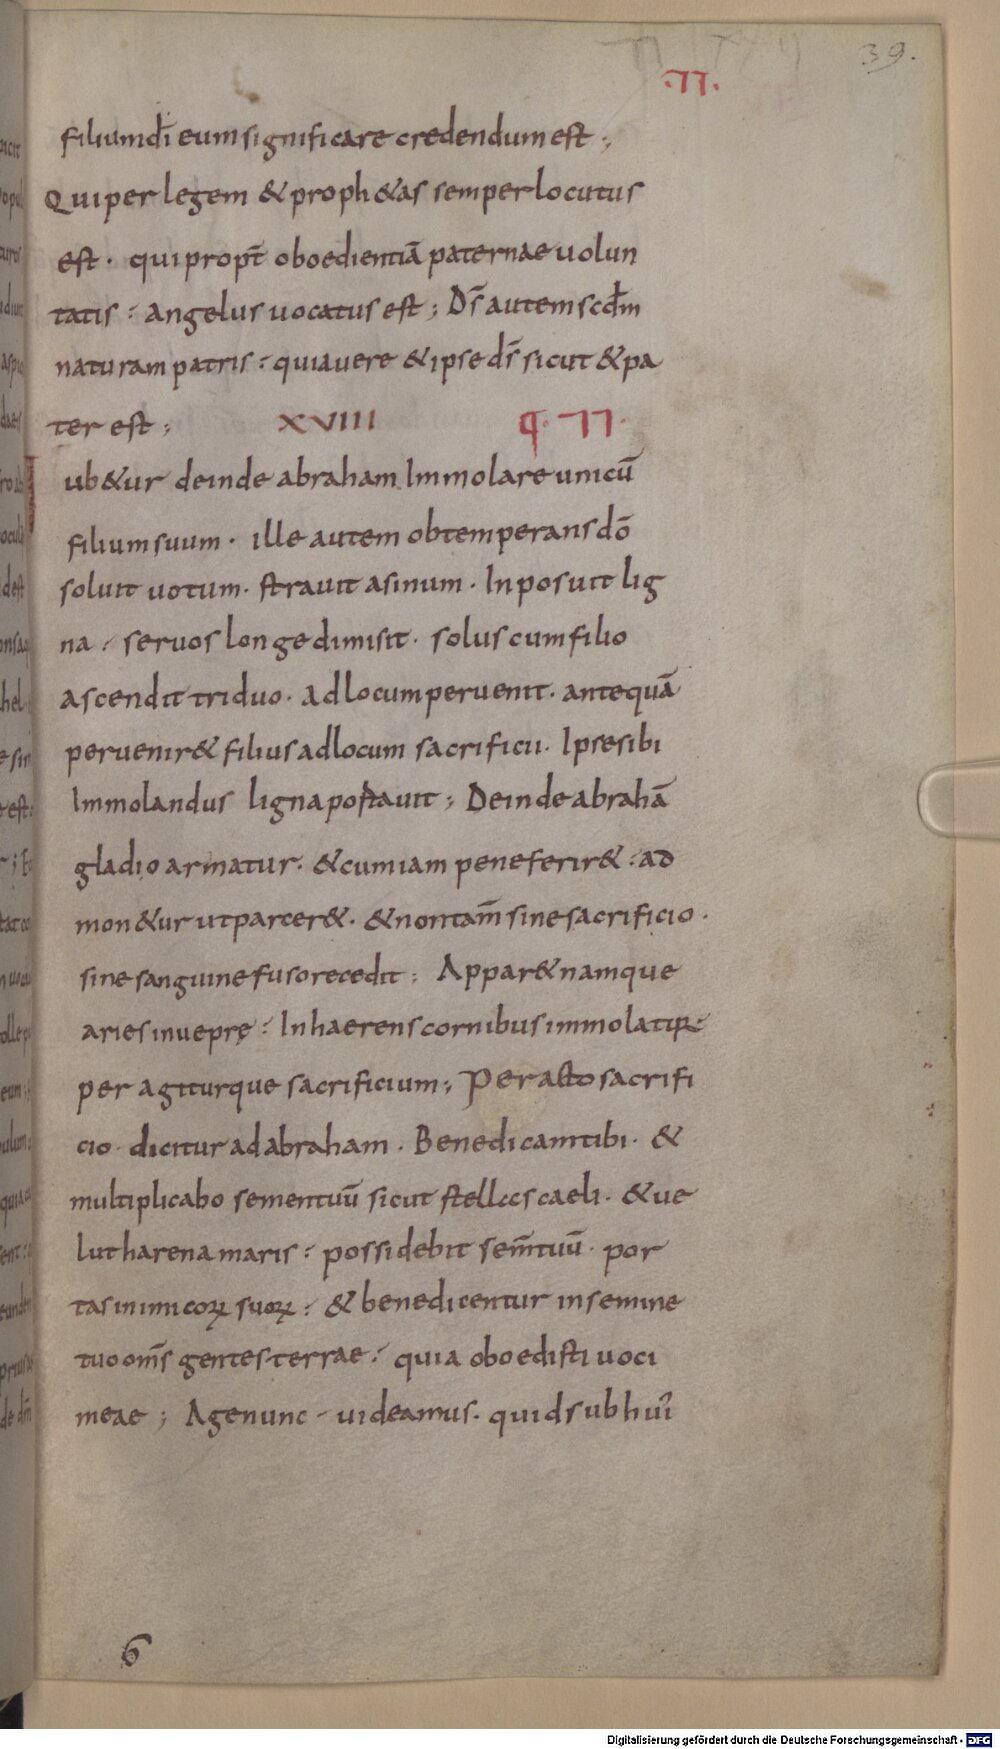 39.
·⁊⁊·
filium dī eum significare credendum est ;
Qui per legem & proph&as semper locutus
est · qui propt̄ oboedientiā paternae uolun
tatis : angelus uocatus est ; Ds̄ autem scd̄m
naturam patris : quia uere & ipse ds̄ sicut & pa
ter est ; XVIII
ub&ur deinde abraham Immolare unicū
filium suum · ille autem obtemperans dō
soluit uotum · strauit asinum · Inposuit lig
na : seruos longe dimisit · solus cum filio
ascendit triduo · ad locum peruenit · antequā
peruenir& filius ad locum sacrificii · Ipse sibi
Immolandus ligna portauit ; Deinde abrahā
gladio armatur · & cum iam pene ferir& : ad
mon&ur ut parcer& · & non tam̄ sine sacrificio ·
sine sanguine fuso recedit ; Appar& namque
aries in ueprę : Inhaerens cornibus immolatur
per agiturque sacrificium ; Peracto sacrifi
cio · dicitur ad abraham · Benedicam tibi · &
multiplicabo semen tuū sicut stellas caeli · & ue
lut harena maris : possidebit sem̄ tuū · por
tas inimicoꝝ suoꝝ : & benedicentur in semine
tuo om̄s gentes terrae : quia oboedisti uoci
meae ; Age nunc - uideamus · quid sub hui
6
Digitalisierung gefördert durch die Deutsche Forschungsgemeinschaft - DFG